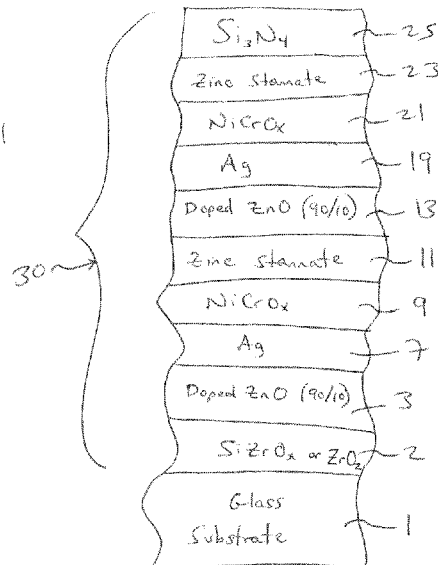 Si3N4 25
Zinc stannate 23
NiCrOx 21
1
Ag 19
Doped ZnO (90/10) 13
Zinc stannate 11
30
NiCrOx 9
Ag 7
Doped ZnO (90/10) 3
SiZrOx or ZrO2 2
Glass
Substrate 1